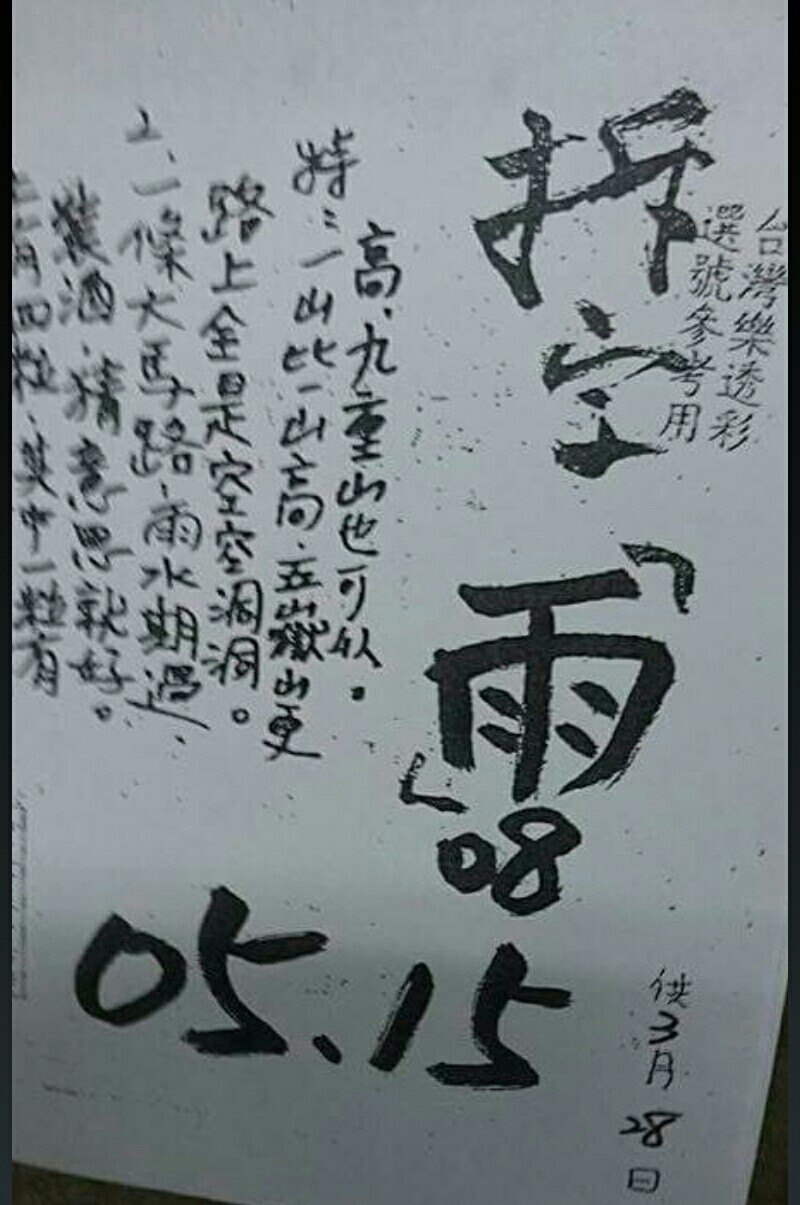 台灣樂透彩
選號參考用
拆字「雨」08
05.15
供3月28日
高、九重山也可以。
特:一山比一山高、五嶽山更
路上全是空空洞洞。
2、一條大馬路、雨水期過、
裝酒、猜意思就好。
月四粒、其中一粒有